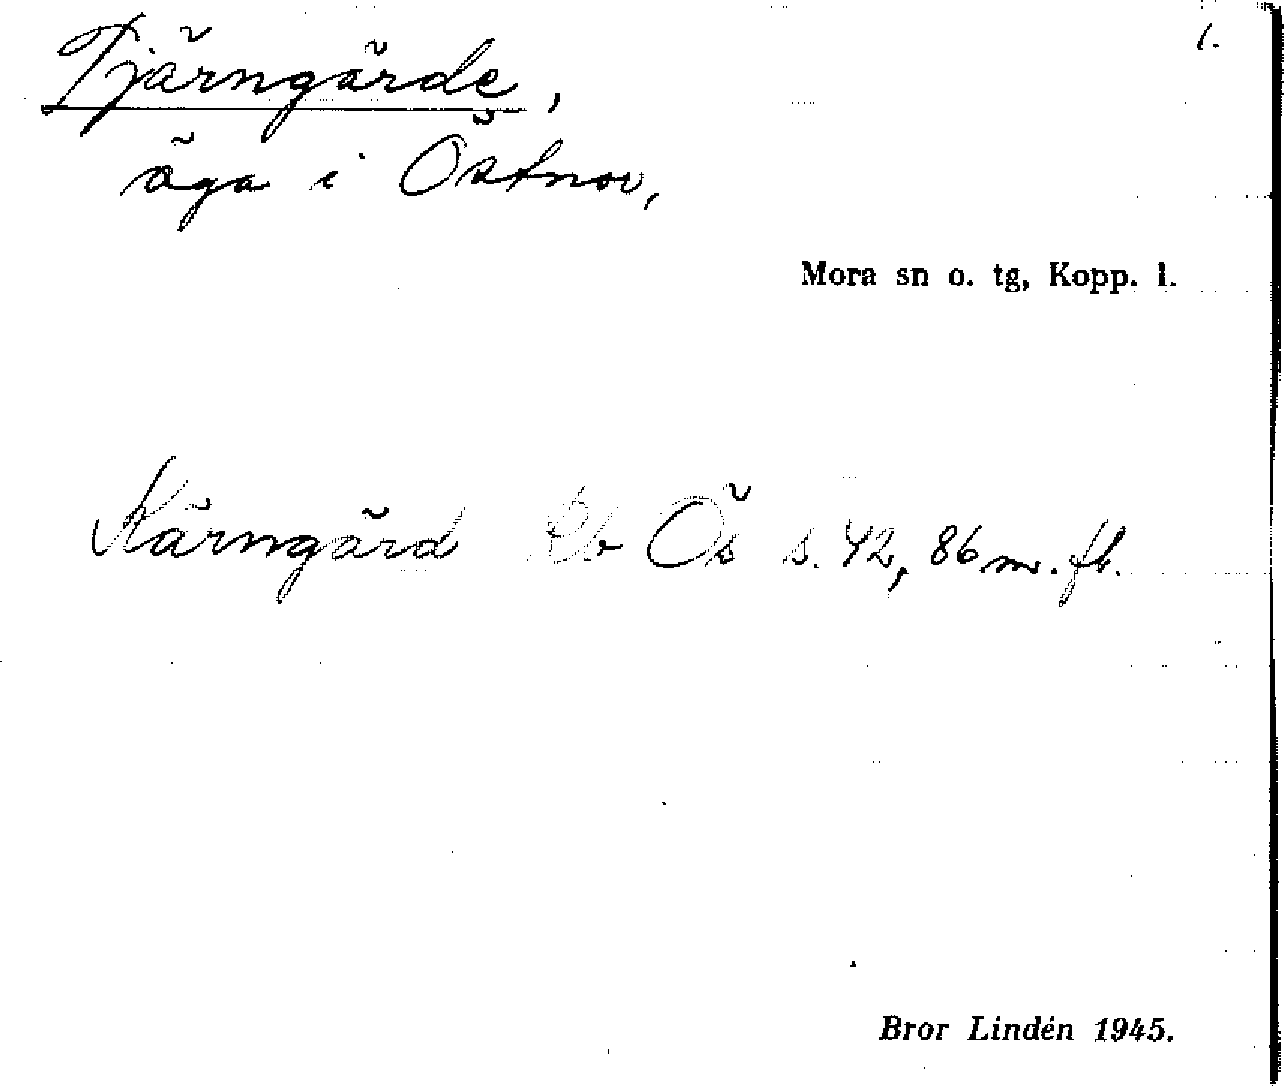 1.
Tjärngärde,
äga i Östnor,
Mora sn o. tg, Kopp. l.
Kärngärd Rb Ös s. 42, 86 m. fl.
Bror Lindén 1945.